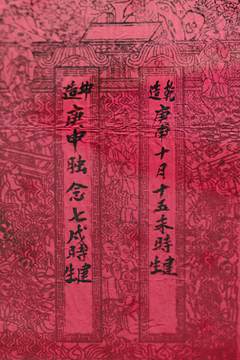 乾造庚申十月十五未時建生
坤造庚申腊念七戌時建生